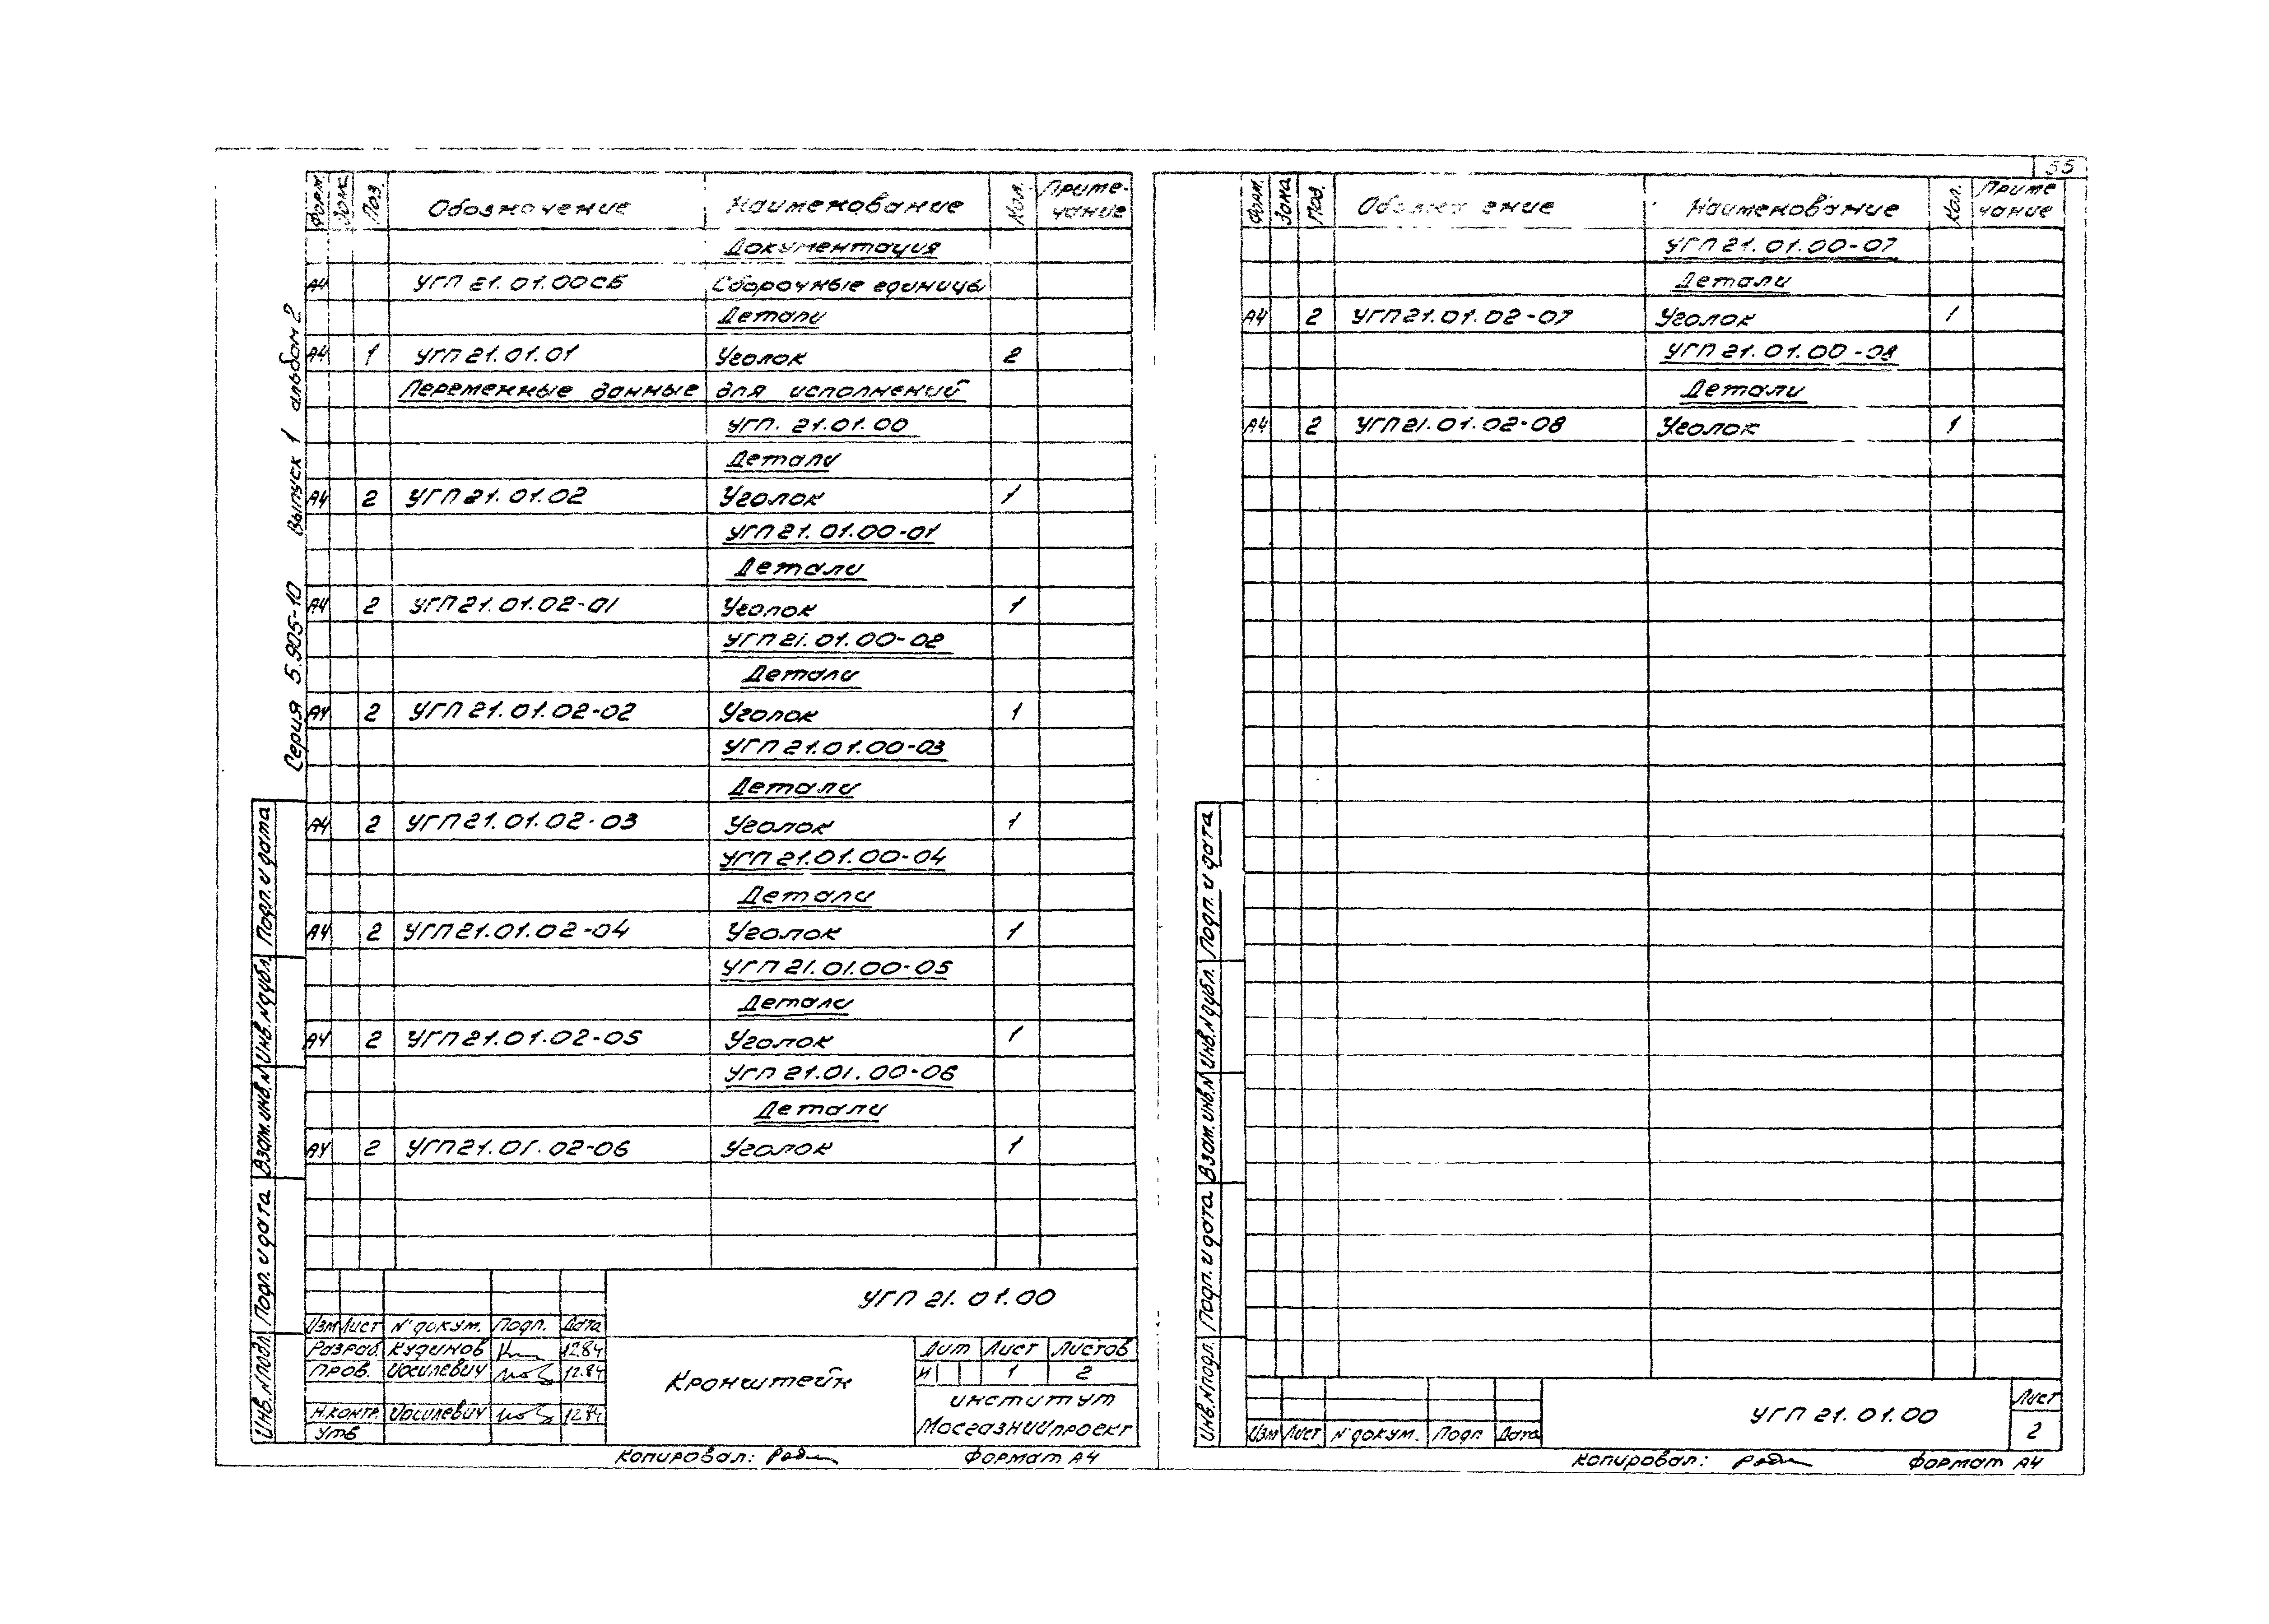 Форм. Зона Поз. Обозначение Наименование Кол. Приме-чание
Документация
А4 УГП 21.01.00СБ Сборочные единицы
Детали
А4 1 УГП 21.01.01 Уголок 2
Переменные данные для исполнений
УГП. 21.01.00
Детали
А4 2 УГП 21.01.02 Уголок 1
УГП 21.01.00-01
Детали
А4 2 УГП 21.01.02-01 Уголок 1
УГП 21.01.00-02
Детали
А4 2 УГП 21.01.02-02 Уголок 1
УГП 21.01.00-03
Детали
А4 2 УГП 21.01.02-03 Уголок 1
УГП 21.01.00-04
Детали
А4 2 УГП 21.01.02-04 Уголок 1
УГП 21.01.00-05
Детали
А4 2 УГП 21.01.02-05 Уголок 1
УГП 21.01.00-06
Детали
А4 2 УГП 21.01.02-06 Уголок 1
Серия 5.905-10 Выпуск 1 альбом 2
Инв.№подл. Подп. и дата Взам.инв.№ Инв.№дубл. Подп. и дата
УГП 21.01.00
Изм Лист № докум. Подп. Дата
Разраб. Кудинов 12.84
Пров. Иосилевич 12.84
Н.контр. Иосилевич 12.84
Утв
Кронштейн
Лит Лист Листов
И 1 2
институт
Мосгазниипроект
Копировал: Формат А4
55
Форм. Зона Поз. Наименование Кол. Приме чание
УГП 21.01.00-07
Детали
А4 2 УГП 21.01.02-07 Уголок 1
УГП 21.01.00-08
Детали
А4 2 УГП 21.01.02-08 Уголок 1
Инв.№подл. Подп. и дата Взам.инв.№ Инв.№дубл. Подп. и дата
Изм Лист № докум. Подп Дата
УГП 21.01.00
Лист
2
Копировал: Формат А4